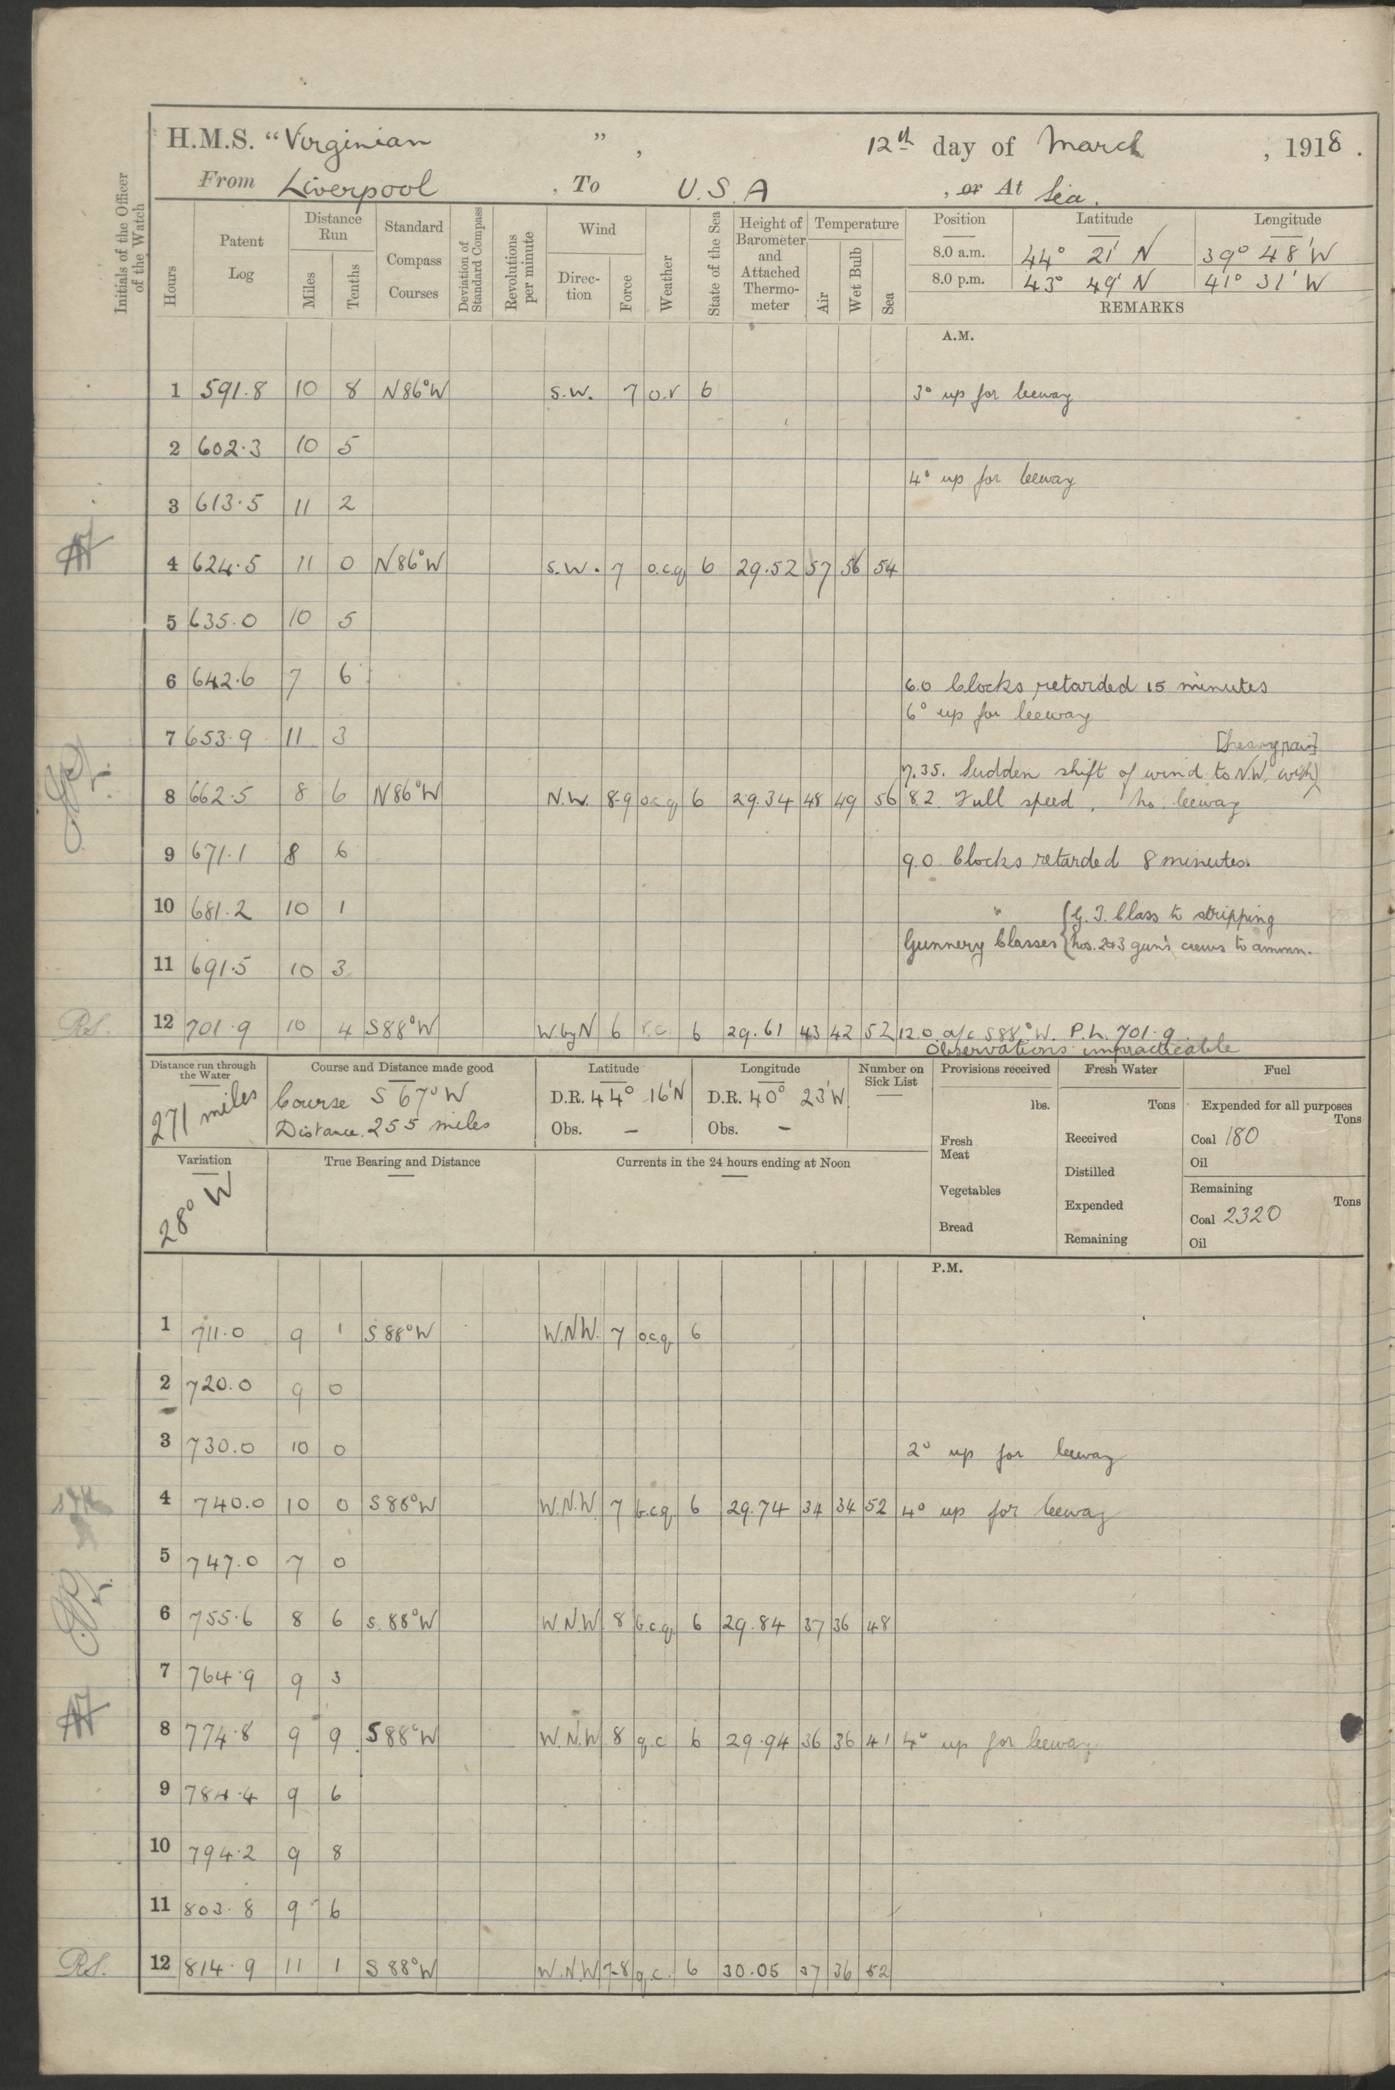 H.M.S. "Virginian", 12th day of March, 1918.
From Liverpool, To U.S.A, or At Sea.
Initials of the Officer of the Watch
Hours
Patent Log
Distance Run
Miles
Tenths
Standard Compass Courses
Deviation of Standard Compass
Revolutions per minute
Wind
Direction
Force
Weather
State of the Sea
Height of Barometer and Attached Thermometer
Temperature
Air
Wet Bulb
Sea
Position Latitude Longitude
8.0 a.m. 44° 21' N 39° 48' W
8.0 p.m. 43° 49' N 41° 31' W
REMARKS
A.M.
1 591.8 10 8 N86°W S.W. 7 o.r 6 3° up for leeway
2 602.3 10 5
4° up for leeway
3 613.5 11 2
4 624.5 11 0 N86°W S.W. 7 o.c.q 6 29.52 57 56 54
5 635.0 10 5
6 642.6 7 6 6.0 Clocks retarded 15 minutes
6° up for leeway
7 653.9 11 3
[heavy rain]
7.35. Sudden shift of wind to N.W. with
8 662.5 8 6 N86°W N.W. 8-9 o.c.q 6 29.34 48 49 56 8.2. Full speed. No leeway
9 671.1 8 6 9.0 Clocks retarded 8 minutes.
10 681.2 10 1 " { G.T. Class to stripping
Gunnery Classes { Nos. 2&3 gun's crews to ammn.
11 691.5 10 3
R.S. 12 701.9 10 4 S88°W W.byN 6 r.c. 6 29.61 43 42 52 12.0 a/c S88°W. P.L. 701.9
Observations impracticable
Distance run through the Water
271 miles
Course and Distance made good
Course S 67° W
Distance 255 miles
Latitude
D.R. 44° 16'N
Obs. -
Longitude
D.R. 40° 23'W
Obs. -
Number on Sick List
Provisions received
lbs.
Fresh Meat
Vegetables
Bread
Fresh Water
Tons
Received
Distilled
Expended
Remaining
Fuel
Expended for all purposes
Tons
Coal 180
Oil
Remaining
Tons
Coal 2320
Oil
Variation
28° W
True Bearing and Distance
Currents in the 24 hours ending at Noon
P.M.
1 711.0 9 1 S88°W W.N.W. 7 o.c.q. 6
2 720.0 9 0
3 730.0 10 0 2° up for leeway
4 740.0 10 0 S88°W W.N.W. 7 b.c.q. 6 29.74 34 34 52 4° up for leeway
5 747.0 7 0
6 755.6 8 6 S.88°W W.N.W 8 b.c.q. 6 29.84 37 36 48
7 764.9 9 3
8 774.8 9 9 S88°W W.N.W 8 q.c 6 29.94 36 36 41 4° up for leeway
9 784.4 9 6
10 794.2 9 8
11 803.8 9 6
R.S. 12 814.9 11 1 S88°W W.N.W 7-8 q.c. 6 30.05 37 36 52